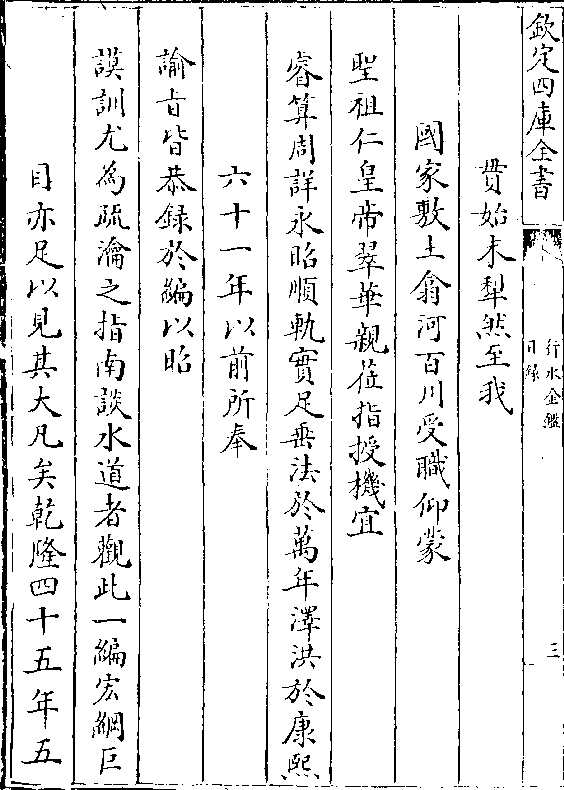 欽定四庫全書
行水金鑑
目錄
三
貫始末犁然至我
國家敷土翕河百川受職仰蒙
聖祖仁皇帝翠華親莅指授機宜
睿算周詳永昭順軌實足垂法於萬年澤洪於康熙
六十一年以前所奉
諭旨皆恭録於編以昭
謨訓尤為疏瀹之指南談水道者觀此一編宏綱巨
目亦足以見其大凡矣乾隆四十五年五